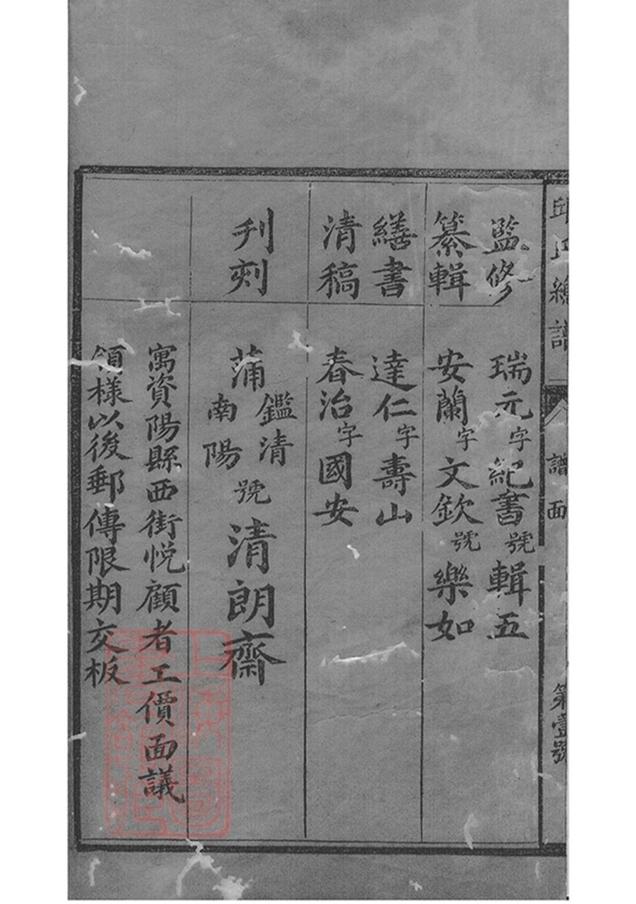 邱氏總譜 譜面 第壹號
監修 瑞元字紀書號輯五
纂輯 安蘭字文欽號樂如
繕書 達仁字壽山
清稿 春治字國安
刋刻 蒲鑑清南陽號清朗齋
寓資陽縣西街悅顧者工價面議
領樣以後郵傳限期交板